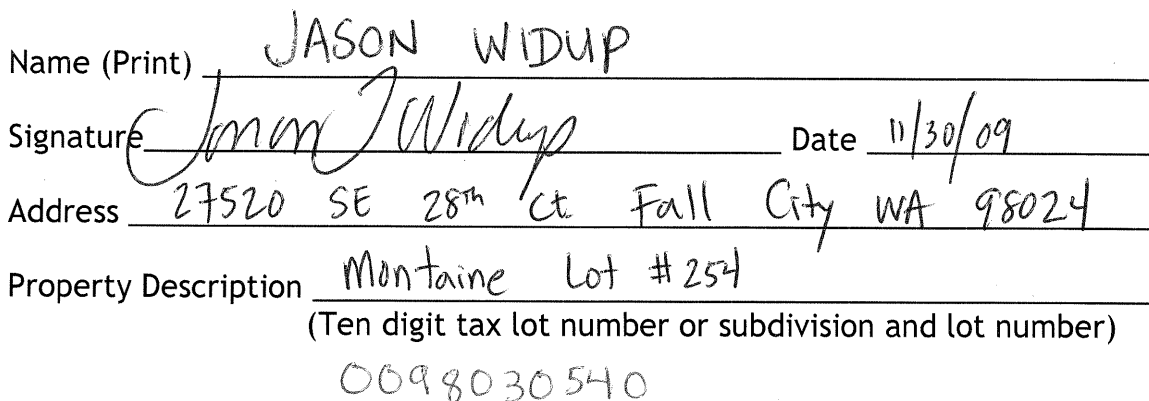 Name (Print) JASON WIDUP
Signature Jason J Widup Date 11/30/09
Address 27520 SE 28th Ct Fall City WA 98024
Property Description Montaine Lot #254
(Ten digit tax lot number or subdivision and lot number)
0098030540